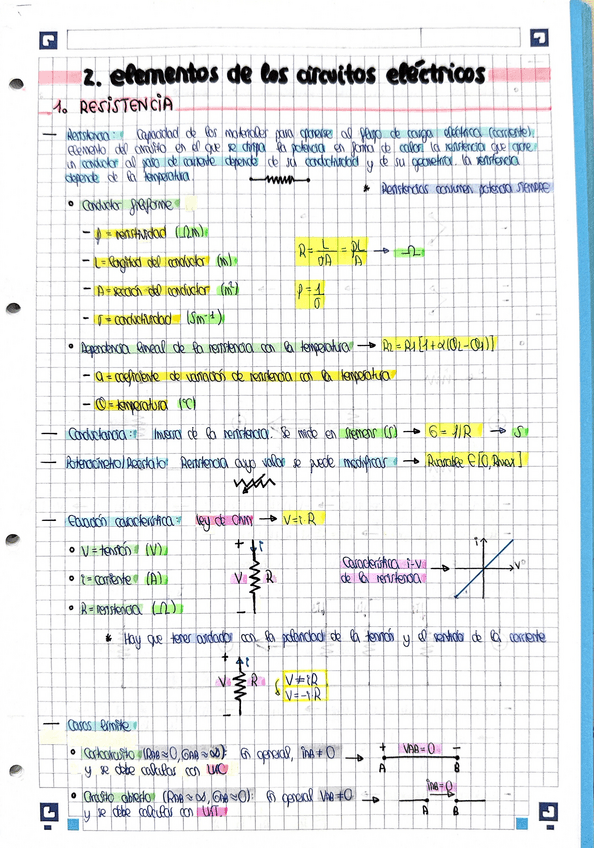 2. elementos de los circuitos eléctricos
1. RESISTENCIA
— Resistencia: Capacidad de los materiales para oponerse al flujo de carga eléctrica (corriente).
Elemento del circuito en el que se disipa la potencia en forma de calor. La resistencia que opone
un conductor al paso de corriente depende de su conductividad y de su geometría. La resistencia
depende de la temperatura.
* Resistencias consumen potencia SIEMPRE
• Conductor filiforme
- ρ = resistividad (Ωm)
- L = longitud del conductor (m)
R = L/σA = ρL/A → Ω
- A = sección del conductor (m²)
ρ = 1/σ
- σ = conductividad (Sm⁻¹)
• Dependencia lineal de la resistencia con la temperatura → R2 = R1 [1+α(Θ2-Θ1)]
- α = coeficiente de variación de resistencia con la temperatura
- Θ = temperatura (°C)
— Conductancia: Inversa de la resistencia. Se mide en siemens (S) → G = 1/R → S
— Potenciómetro/Reostato: Resistencia cuyo valor se puede modificar → Rvariable ∈ [0, Rmax]
— Ecuación característica: ley de Ohm → V = i·R
• V = tensión (V)
• i = corriente (A)
• R = resistencia (Ω)
+ i
V R
-
Característica i-v
de la resistencia
i
V
* Hay que tener cuidado con la polaridad de la tensión y el sentido de la corriente
+ i
V R
-
V ≠ iR
V = -i·R
— Casos límite
• Cortocircuito (RAB ≈ 0, GAB ≈ ∞): En general, iAB ≠ 0 →
y se debe calcular con LKC
+ VAB = 0 -
A B
• Circuito abierto (RAB ≈ ∞, GAB ≈ 0): En general VAB ≠ 0 →
y se debe calcular con LKT.
iAB = 0
A B